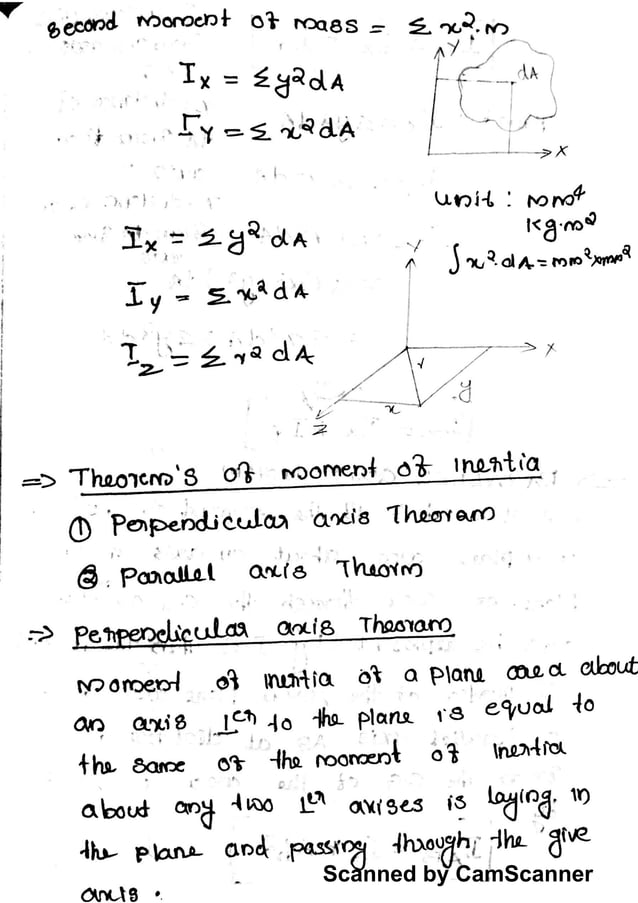 second moment of mass = Σ x². m
Y
Ix = Σy²dA
dA
IY = Σ x²dA
X
unit : mm⁴
kg.m²
Ix = Σ y² dA
∫x². dA = mm²xmm²
Y
Iy = Σ x² dA
Iz = Σ r² dA
X
r
y
x
Z
=> Theorem's of moment of Inertia
① Perpendicular axis Theoram
②. Parallel axis Theorm
=> Perpendicular axis Theoram
moment of inertia of a plane area about
an axis ⊥er to the plane is equal to
the same of the moment of Inertia
about any two ⊥er axises is laying. in
the plane and passing through, the give
axis.
Scanned by CamScanner